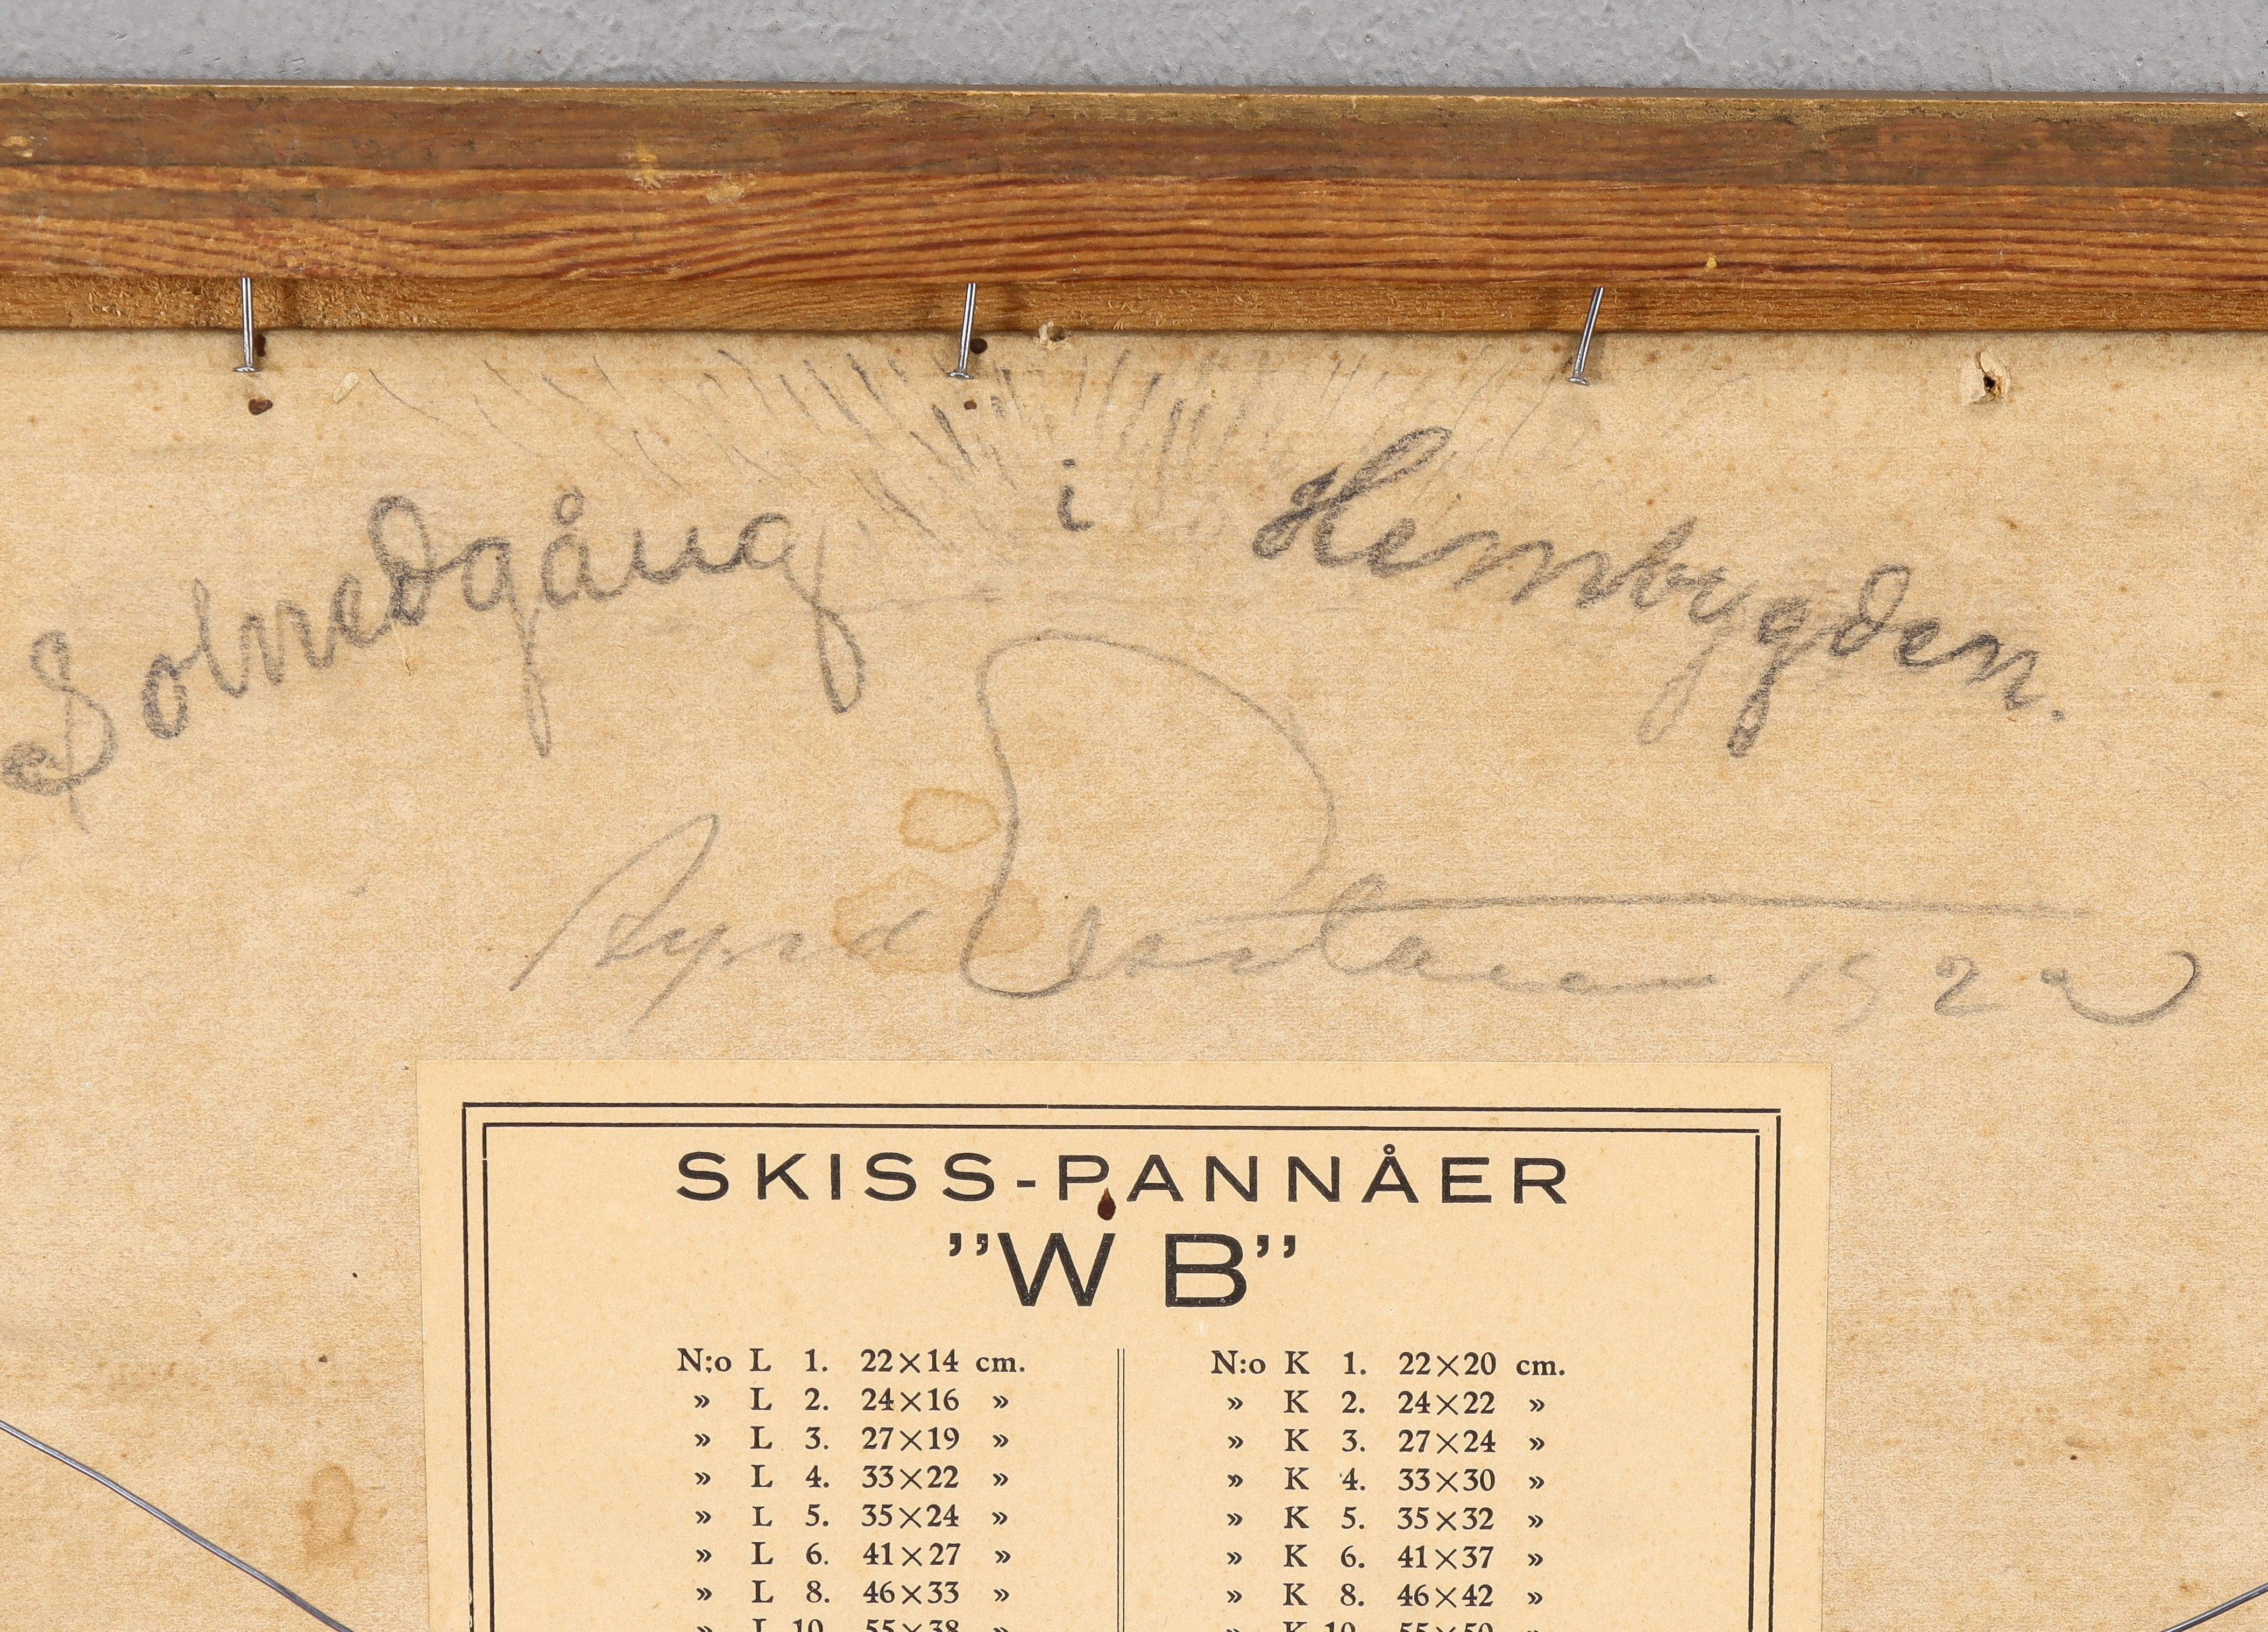 Solnedgång i Hembygden.
192
SKISS-PANNÅER
”W B”
N:o L 1. 22×14 cm. N:o K 1. 22×20 cm.
» L 2. 24×16 » » K 2. 24×22 »
» L 3. 27×19 » » K 3. 27×24 »
» L 4. 33×22 » » K 4. 33×30 »
» L 5. 35×24 » » K 5. 35×32 »
» L 6. 41×27 » » K 6. 41×37 »
» L 8. 46×33 » » K 8. 46×42 »
» L 10. 55×38 » » K 10. 55×50 »